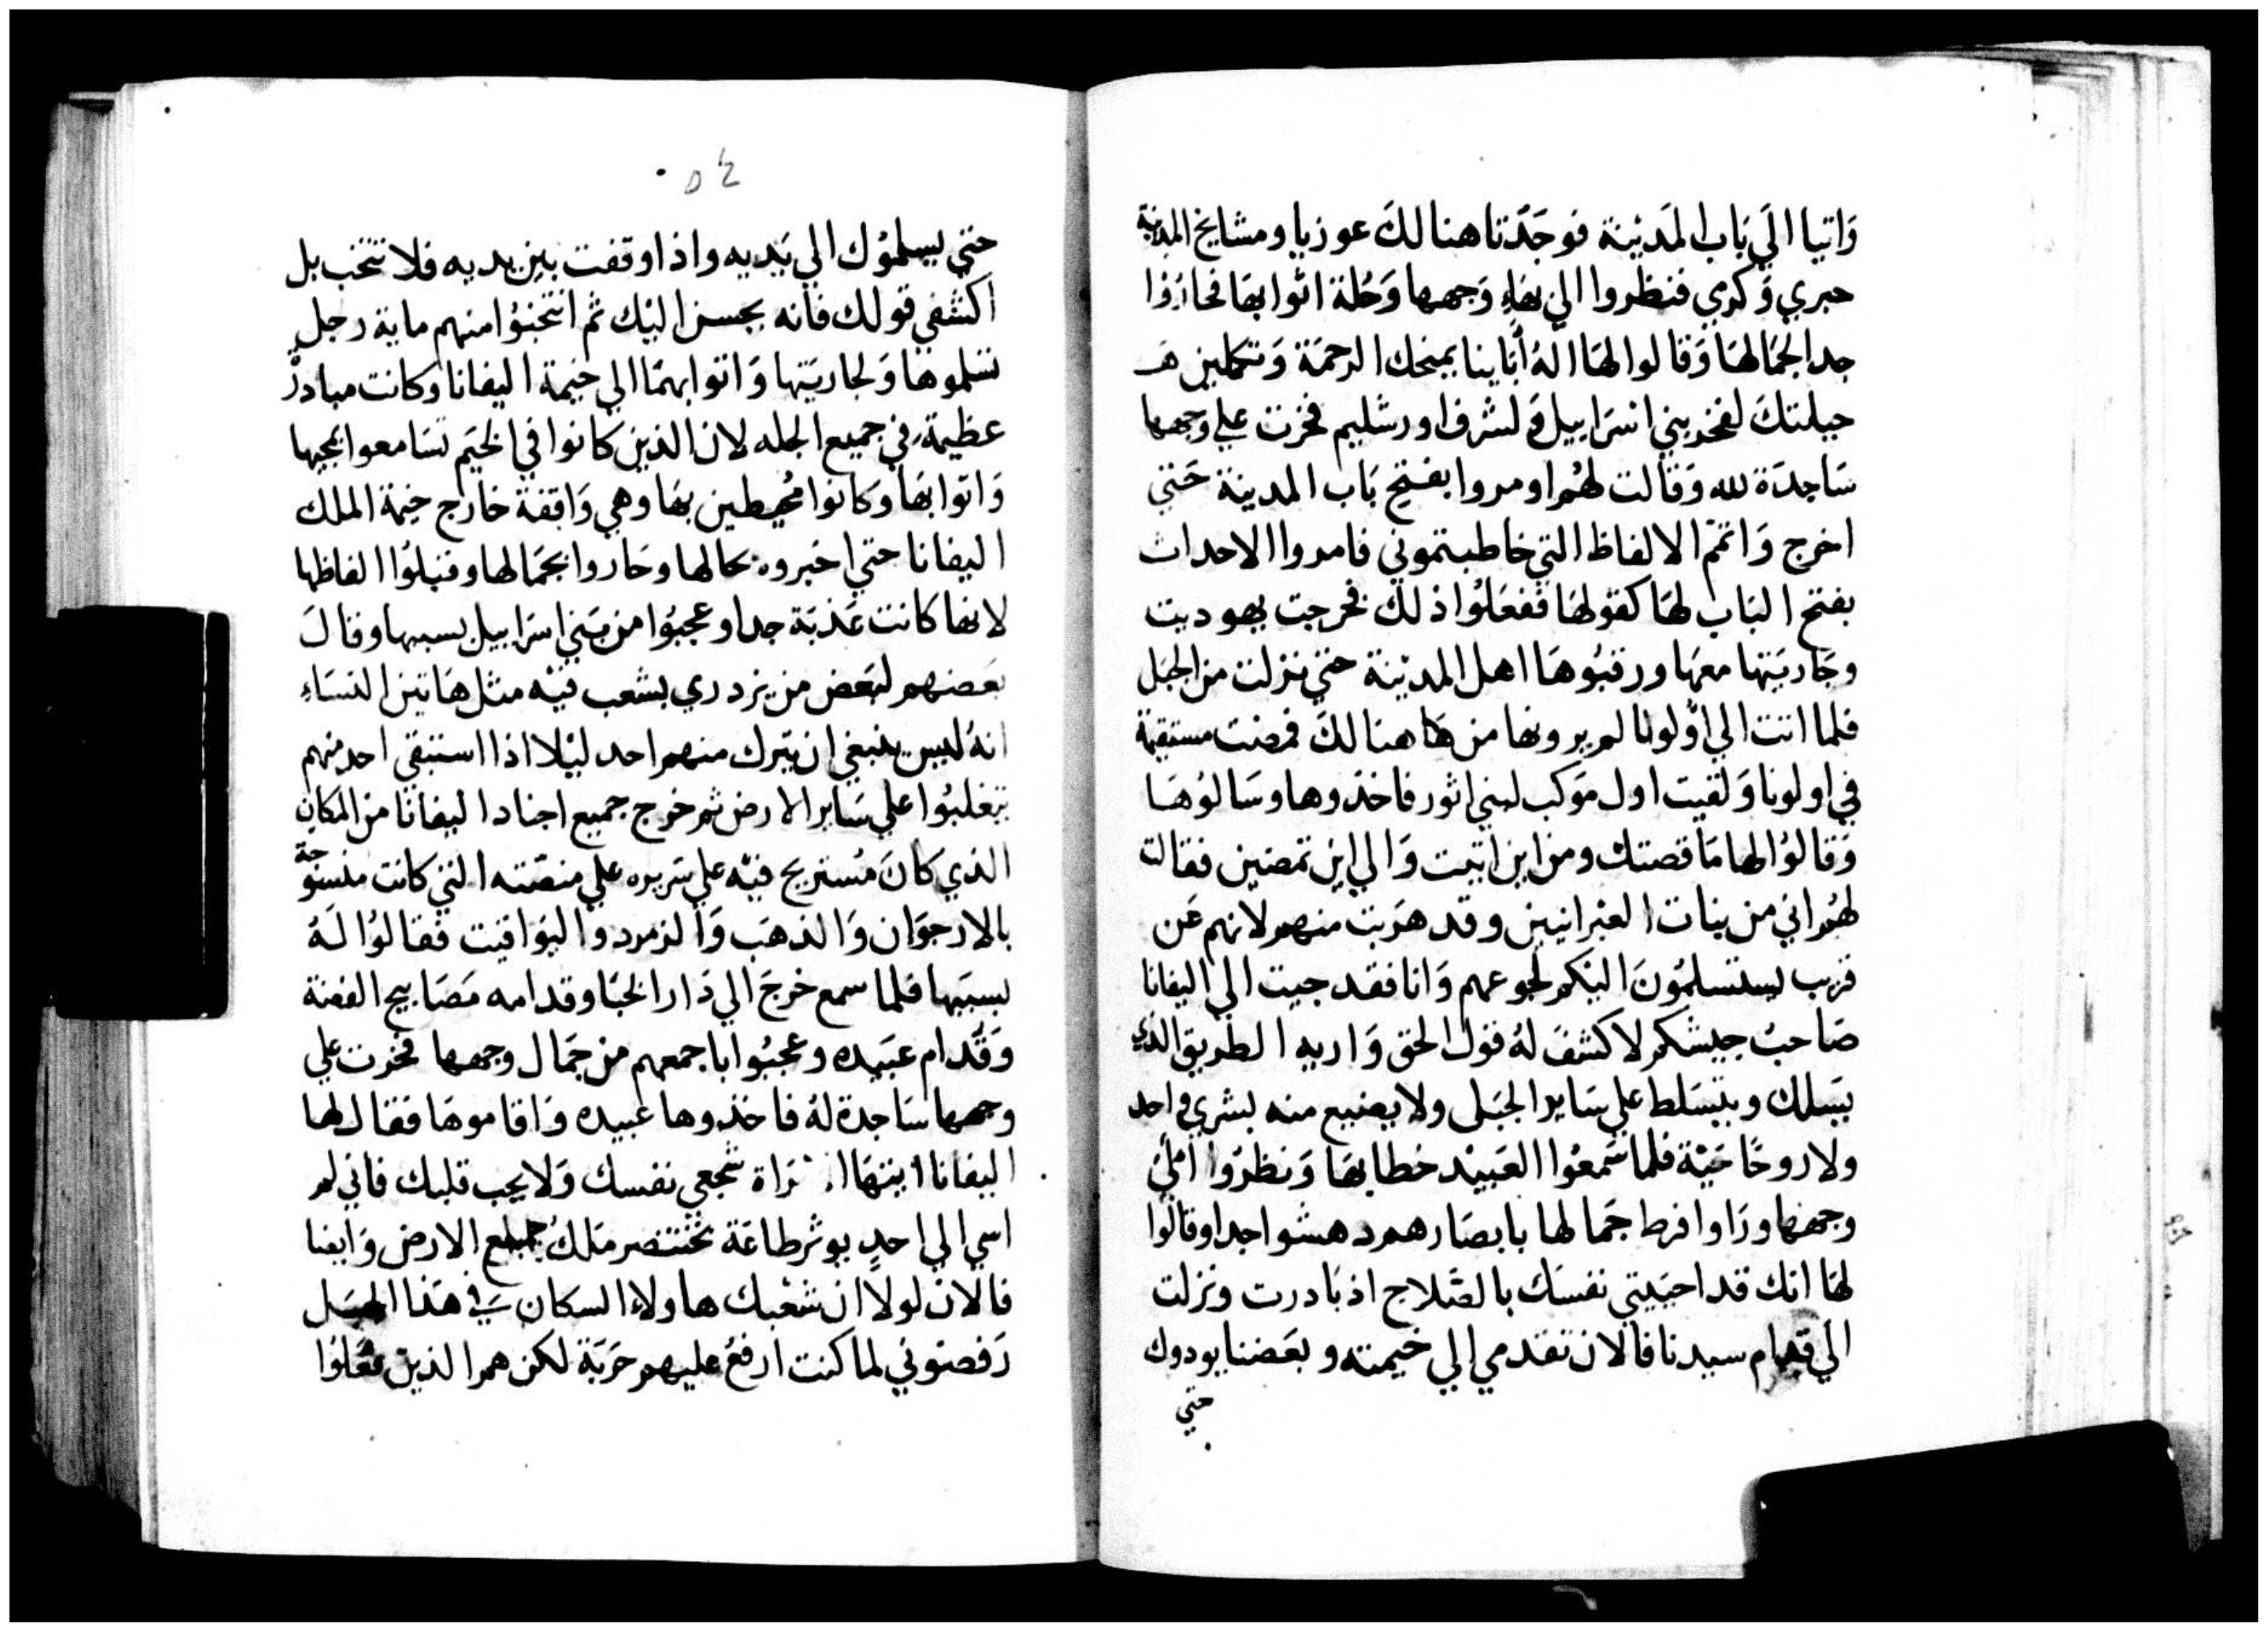 وَاتيا الَي بَاب المَديْنة فوجَدَتا هنالكَ عوزيا ومشايخ المدينة
حبري وَكرمي فنظروا الي بهَاءِ وَجهها وَحُلة اثوابهَا فحارُوا
جدا لجمَالهَا وَقالوا لهَا الهُ أبَاينا يمنحك الرحمَة وَتتكملين هـ
حيلتكَ لفخر بني اسرَاييل وَلشرف اورشليم فخرت علي وجهها
سَاجدَة لله وَقالت لهُم اومروا بفتح بَاب المدينة حَتي
اخرج وَاتمّم الالفاظ التي خاطبتموني فامروا الاحداث
بفتح البَاب لهَا كقولهَا ففعَلوُا ذلك فخرجت يهوديت
وجَاريَتها معهَا ورقبُوهَا اهل المديْنة حتي نزلت من الجبَل
فلما اتت الي اوّلونا لم يرونها من هَاهنالكَ فمضت مستقيمة
في اولونا وَلقيت اول موَكب لبني اثور فاخذوها وسَالوُهَا
وَقالوُا لها مَا قصتك ومن اين اتيت وَالي اين تمضين فقالت
لهُم اني من بنات العبْرانيين وقد هرَبت منهم لانهم عَن
قرب يستسلموُنَ اليَكم لجوعهم وَانا فقد جيت الي اليفانا
صَاحبُ جيشكم لاكشفَ لهُ قول الحق وَاريه الطريق الذي
يسَلك ويتسَلط علي سَاير الجبَل ولا يضيع منه بشري واحد
ولا روحًا حَيّة فلما سَمعُوا العَبيْد خطابهَا وَنظرُوا الي
وجههَا ورَاوا فرط جمَالها بابصَارهم دهشوا جدا وقالوُا
لهَا انك قد احيَيتي نفسَك بالصَّلاح اذ بَادرت ونزلت
الَي قدام سيدنا فالان تقدمي الي خيمته وبعَضنا يودوك
حتي
٥٤
حتي يسلموُك الي يَديه واذا وقفت بيَن يديه فلا تنتخب بل
اكشفي قولك فانه يحسن اليْك ثم انتخبُوُا منهم ماية رجل
تسَلموهَا وَلجاريَتها وَاتوا بهمَا الي خيمة اليفانا وكانت مبادرَة
عظيمة في جميع الجله لان الذين كانوا في الخيَم تسَامعوا بمجيها
وَاتوا بهَا وكانوا مُحيطين بهَا وهي وَاقفة خارج خيمة الملك
اليفانا حتي اخبروه بحالها وحَاروا بجمَالها وقبلوُا الفاظها
لانها كانت عَذبَة جدا وعجبُوا من بَني اسرَاييل بسببها وقالَ
بعَضهم لبَعض من يزدري بشعب فيْه مثل هَاتين النسَاءِ
انهُ ليس ينبغي ان يترك منهم احد ليْلا اذا استبقي احد منهم
يتغلبُوا علي سَاير الارض ثم خرج جميع اجناد اليفانا من المكان
الذي كانَ مُستريح فيْه علي سَريره علي منصّته التي كانت منسوجة
بالارجوَان وَالذهَب وَالزمرد واليوَاقيت فقالوُا لَهُ
بسببَها فلما سمع خرجَ الي دَار الخبَا وقدامه مصَابيح الفضة
وَقدام عبَيده وعجبُوا باجمعهم من جمَال وجهها فخرت علي
وجهها سَاجدة لهُ فاخذوها عبيده وَاقاموهَا فقال لها
اليفانا ايتهَا المرَاة شجعي نفسك وَلا يجب قلبك فاني لم
اسي الي احدٍ يوثر طاعَة بختنصر ملكُ جميع الارض وَايضا
فالان لولا ان شعْبك هاولاء السكان في هَذا الجبَل
رَفضوني لما كنت ارفعُ عليهم حَربَة لكن هم الذين فعَلوُا